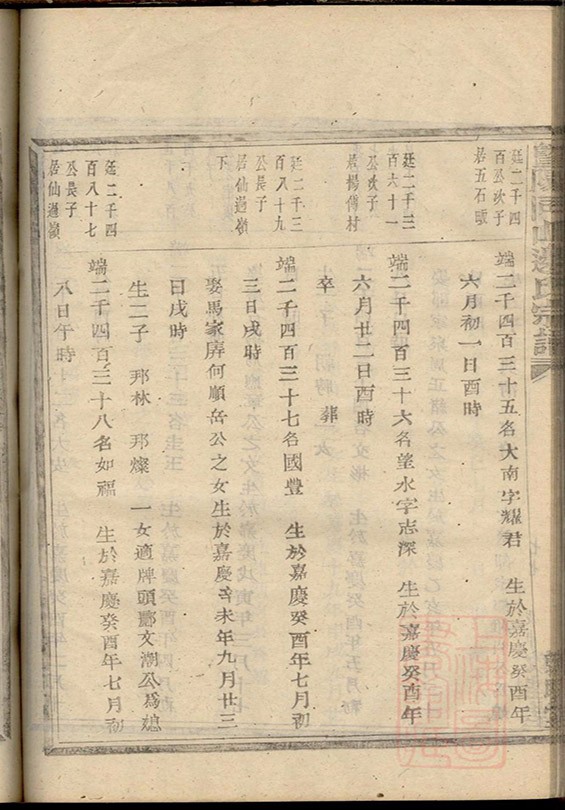 廷二千四
百公次子
居五石畈
端二千四百三十五名大南字耀君 生於嘉慶癸酉年
六月初一日酉時
廷二千三
百六十一
公次子
居楊傅村
端二千四百三十六名望水字志深 生於嘉慶癸酉年
六月廿二日酉時
卒 葬
廷二千三
百八十九
公長子
居仙過嶺
下
端二千四百三十七名國豐 生於嘉慶癸酉年七月初
三日戌時
娶馬家屏何順岳公之女生於嘉慶辛未年九月廿三
日戌時
生二子 邦林 邦燦 一女適牌頭酈文潮公為媳
廷二千四
百八十七
公長子
居仙過嶺
端二千四百三十八名如福 生於嘉慶癸酉年七月初
八日午時
邊氏宗譜